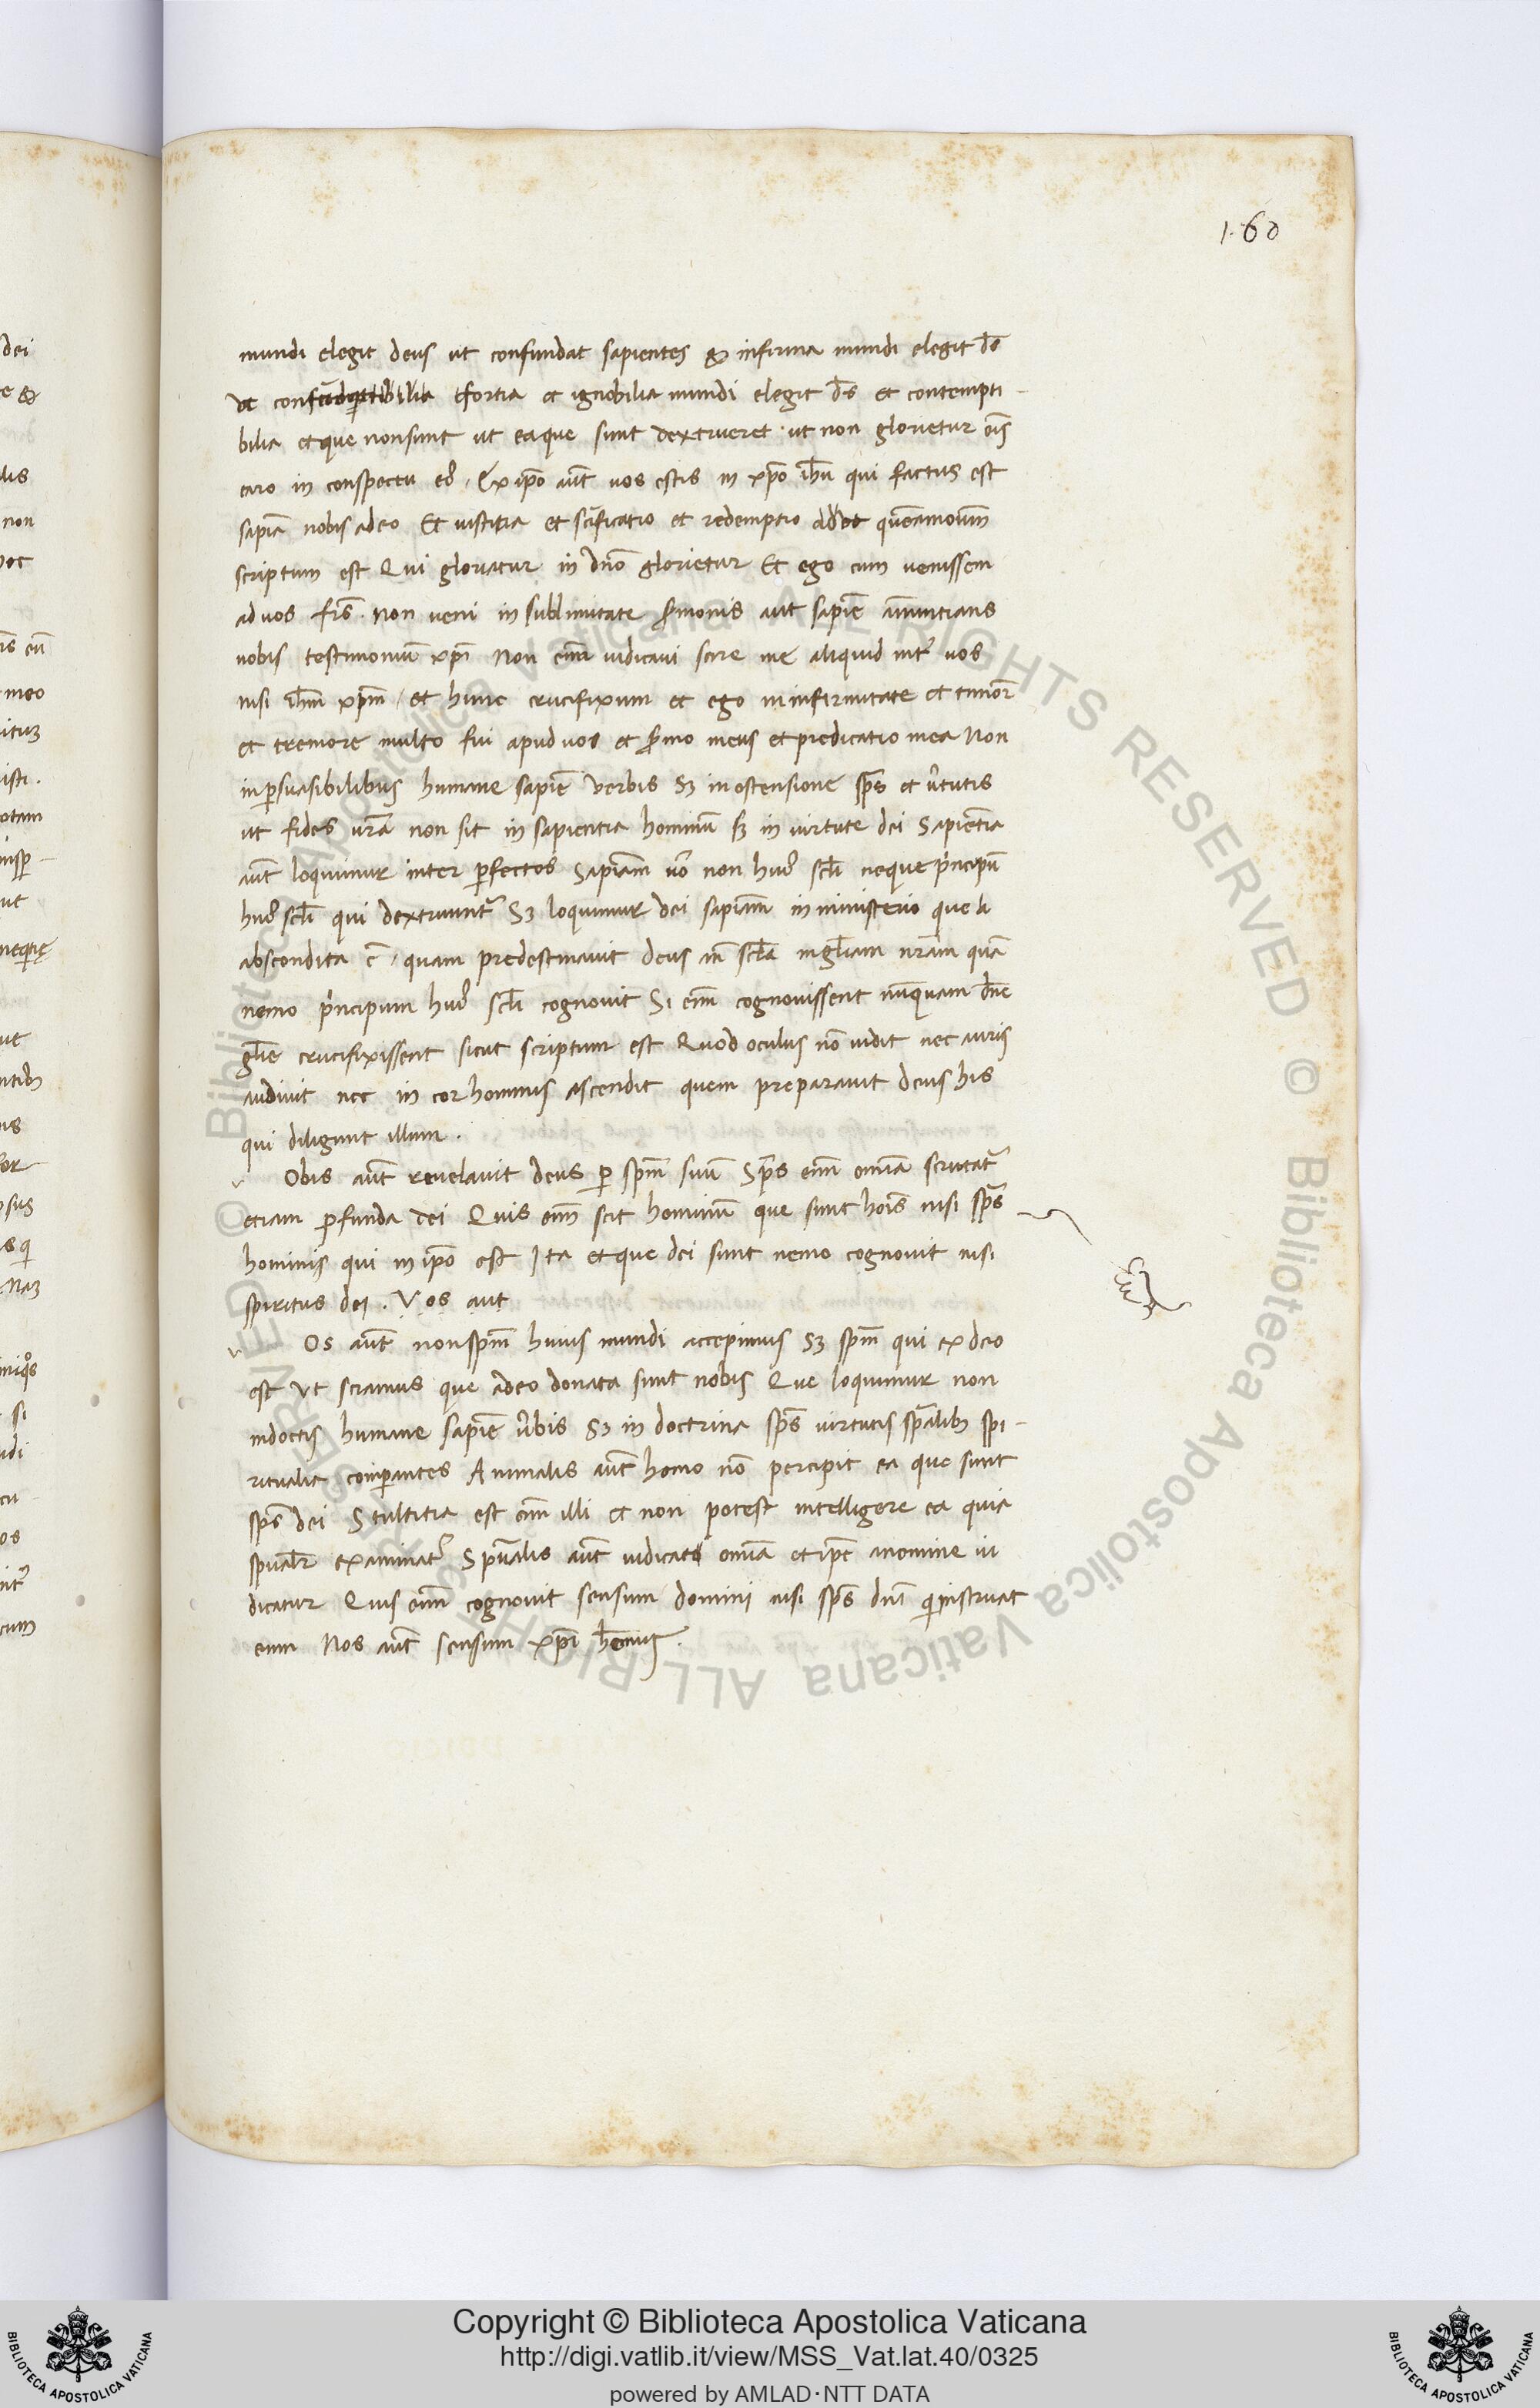 1·60
mundi elegit deus ut confundat sapientes & infirma mundi elegit ds̄
ut confundat fortia et ignobilia mundi elegit ds̄ et contempti-
bilia et que non sunt ut ea que sunt dextrueret · ut non glorietur oīs
caro in conspectu eꝰ · Ex ip̄o aut̄ uos estis in xp̄o ih̄u qui factus est
sapiā nobis adeo Et iustitia et sc̄ificatio et redemptio ut quēamoum̄
scriptum est Qui gloriatur in dn̄o glorietur Et ego cum uenissem
ad uos frs̄ · Non ueni in sublimitate s̄monis aut sapiē annuntians
nobis testimoniū xp̄i Non enim̄ iudicaui scire me aliquid int̄ uos
nisi ih̄m xp̄m / et hunc crucifixum et ego in infirmitate et timor̄
et tremore multo fui apud uos et s̄mo meus et predicatio mea Non
in ꝑsuasibilibus humane sapiē verbis Sꝫ in ostensione sp̄s et v̄tutis
ut fides ur̄a non sit in sapientia hominū sꝫ in uirtute dei Sapientia
aut̄ loquimur inter ꝑfectos Sapiam̄ uō non huiꝰ scl̄i neque p̄ncipū
huiꝰ scl̄i qui dextruunt̄ Sꝫ loquimur dei sapiam̄ in ministerio que
abscondita ē / quam predestinauit deus an̄ scl̄a in gl̄iam nr̄am quā
nemo p̄ncipum huiꝰ scl̄i cognouit Si enim̄ cognouissent nūquam dn̄e
gl̄ie crucifixissent sicut scriptum est Quod oculus nō uidit nec auris
audiuit nec in cor hominis ascendit quem preparauit deus his
qui diligunt illum .
Obis aut̄ reuelauit deus ꝑ sp̄m suū Sp̄s enim̄ omnia scrutat̄
etiam ꝓfunda dei Quis enim̄ scit hominum que sunt hoīs nisi sp̄s
hominis qui in ip̄o est Ita et que dei sunt nemo cognouit nisi
spiritus dei . Vos aut
Os aut̄ non sp̄m huius mundi accepimus Sꝫ sp̄m qui ex deo
est Ut sciamus que adeo donata sunt nobis Que loquimur non
indoctis humane sapiē v̄bis Sꝫ in doctrina sp̄s uirtutis sp̄alibꝫ spi-
ritualia comꝑantes Animalis aut̄ homo nō percipit ea que sunt
sp̄s dei Stultitia est enim̄ illi et non potest intelligere ea quia
spual̄r examinat̄ Spūalis aut̄ iudicat omnia et ip̄e anemine iu
dicatur Quis enim̄ cognouit sensum domini nisi sp̄s dn̄i qui instruat
eum Nos aut̄ sensum xp̄i h̄emus .
Copyright © Biblioteca Apostolica Vaticana
http://digi.vatlib.it/view/MSS_Vat.lat.40/0325
powered by AMLAD·NTT DATA
BIBLIOTECA APOSTOLICA VATICANA
BIBLIOTECA APOSTOLICA VATICANA